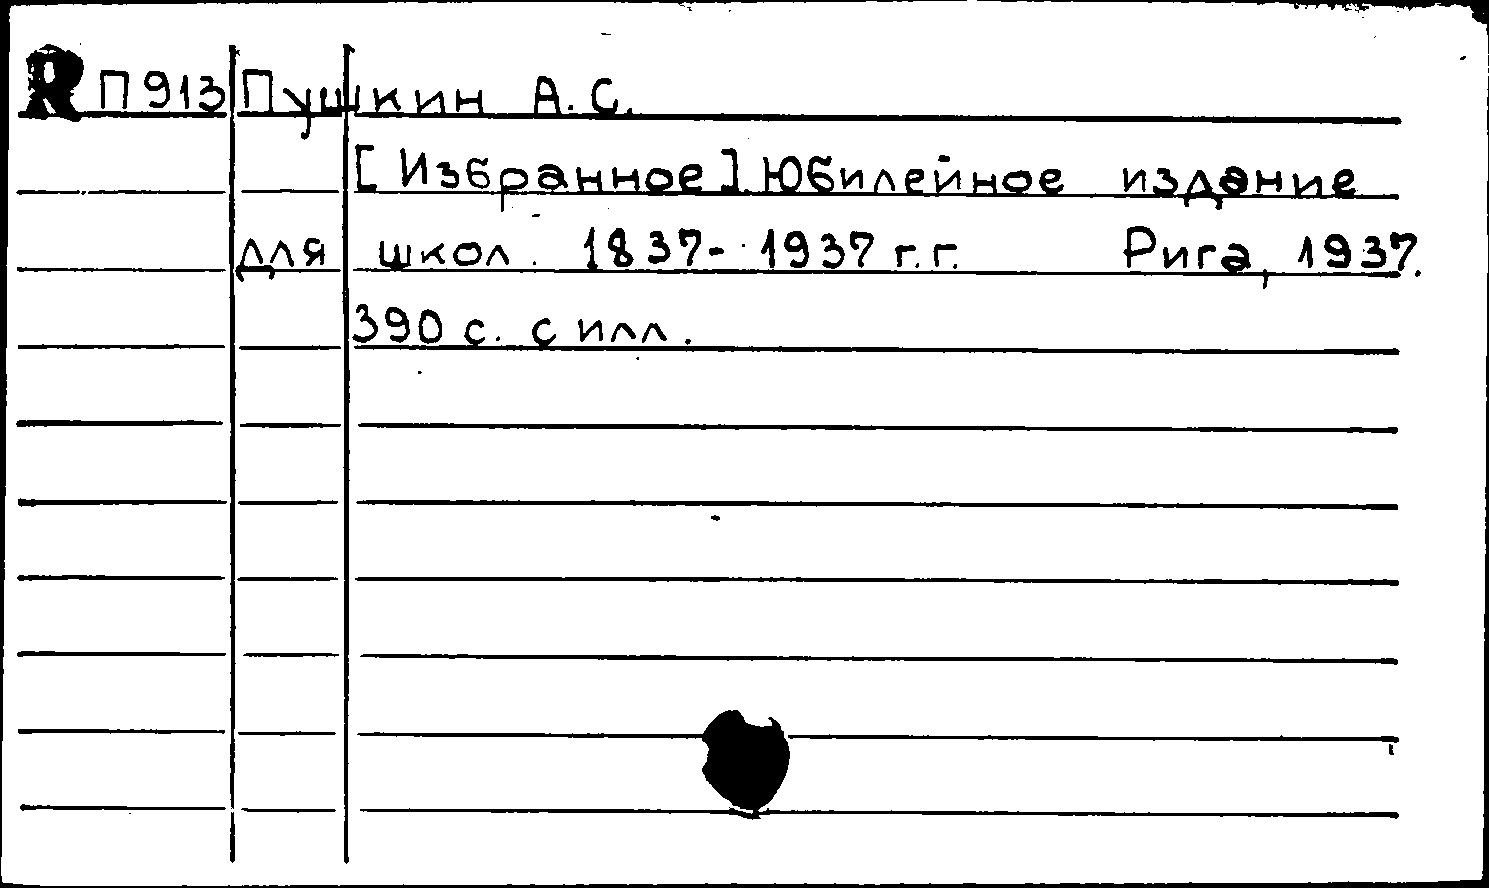 R П913 Пушкин А.С.
[Избранное]. Юбилейное издание
для школ. 1837-1937 г.г. Рига, 1937.
390 с. с илл.